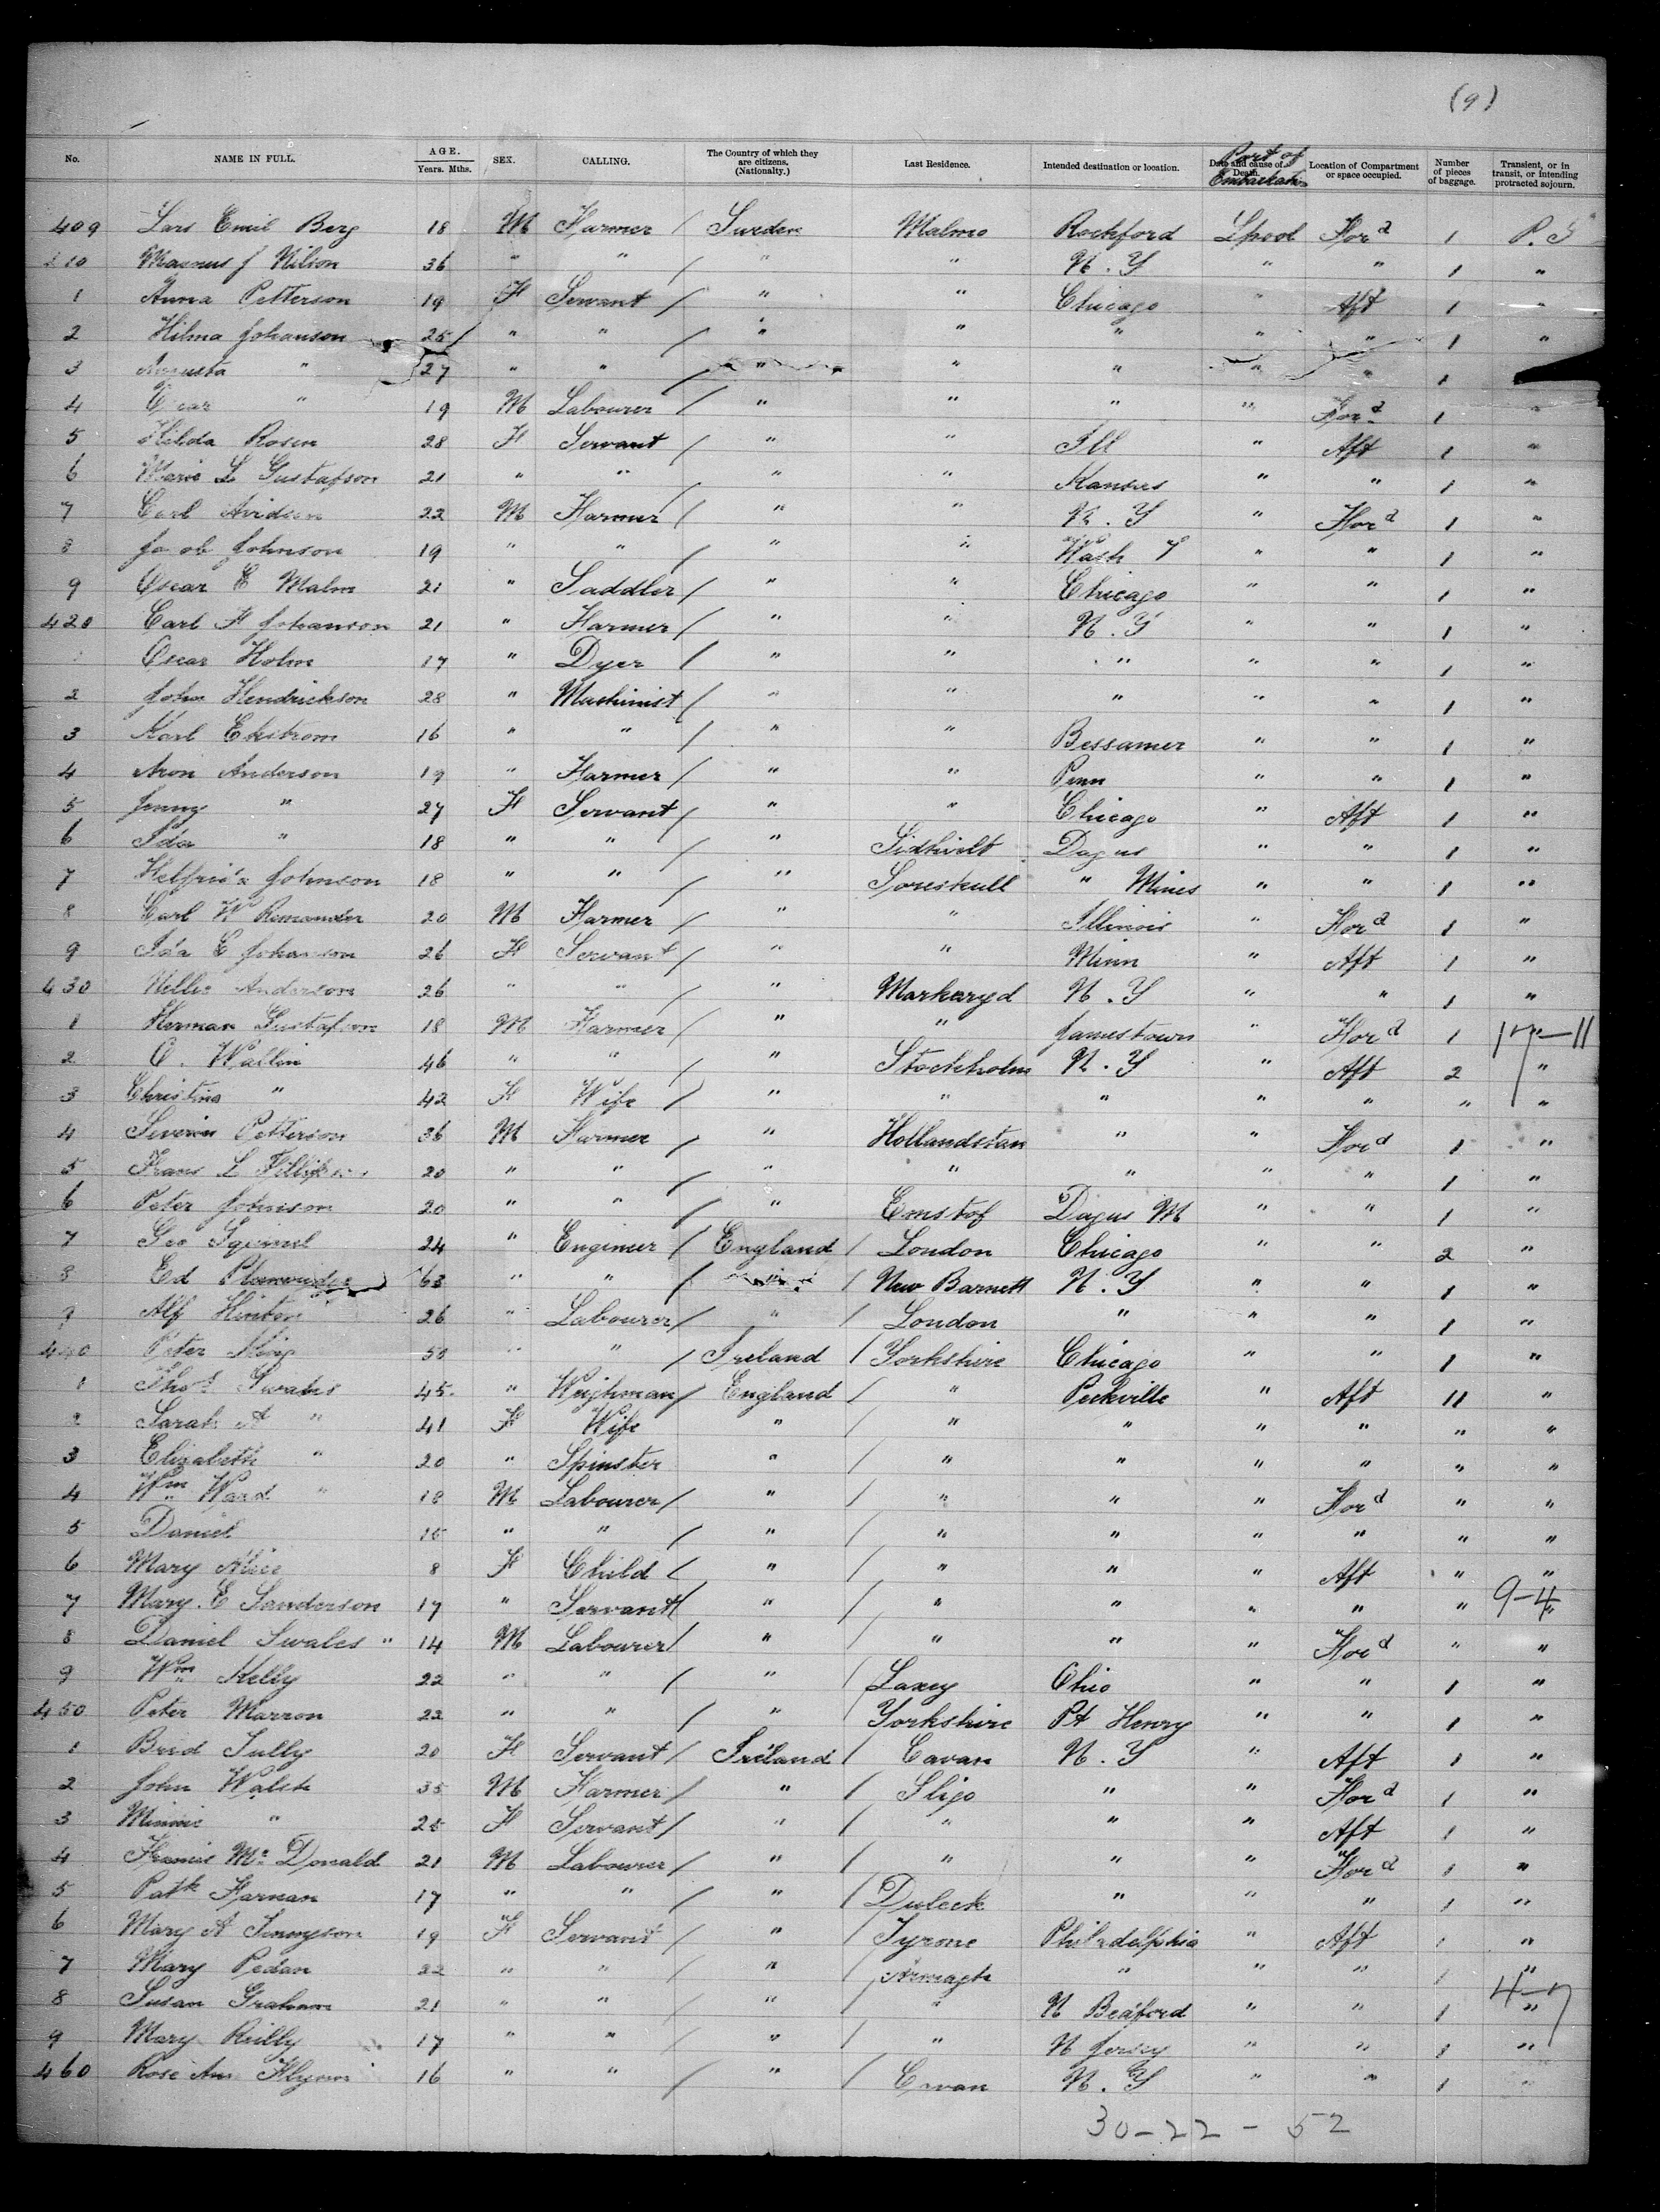 (9)
No. NAME IN FULL. AGE. Years. Mths. SEX. CALLING. The Country of which they are citizens. (Nationality.) Last Residence. Intended destination or location. Date and cause of Death. Port of Embarkation Location of Compartment or space occupied. Number of pieces of baggage. Transient, or in transit, or intending protracted sojourn.
409 Lars Emil Berg 18 M Farmer / Sweden Malmo Rockford Lpool For d 1 P. S
410 Magnus J Nilson 36 " " / " " N. Y " " 1 "
1 Anna Petterson 19 F Servant / " " Chicago " Aft 1 "
2 Hilma Johanson 25 " " / " " " " " 1 "
3 Augusta " 27 " " / " " " " " 1
4 Oscar " 19 M Labourer / " " " " For d 1 "
5 Hilda Rosen 28 F Servant / " " Ill " Aft 1 "
6 Marie L Gustafson 21 " " / " " Kansas " " 1 "
7 Carl Avidson 22 M Farmer / " " N. Y " For d 1 "
8 Jacob Johnson 19 " " / " " Wash " " 1 "
9 Oscar E Malm 21 " Saddler / " " Chicago " " 1 "
420 Carl F Johanson 21 " Farmer / " " N. Y " " 1 "
1 Oscar Holm 17 " Dyer / " " " " " 1 "
2 John Hendrickson 28 " Machinist / " " " " " 1 "
3 Karl Ekstrom 16 " " / " " Bessamer " " 1 "
4 Aron Anderson 19 " Farmer / " " Penn " " 1 "
5 Jenny " 27 F Servant / " " Chicago " Aft 1 "
6 Ida " 18 " " / " Sidhivlt Dagus " " 1 "
7 Helfrida Johnson 18 " " / " Soreskull " Mines " " 1 "
8 Carl W Remander 20 M Farmer / " " Illinois " For d 1 "
9 Ida C Johanson 26 F Servant / " " Minn " Aft 1 "
430 Nellie Anderson 26 " " / " Markaryd N. Y " " 1 "
1 Herman Gustafson 18 M Farmer / " " Jamestown " For d 1 17-11
2 O. Wallin 46 " " / " Stockholm N. Y " Aft 2 "
3 Christina " 42 F Wife / " " " " " " "
4 Severin Petterson 36 M Farmer / " Hollandstan " " For d 1 "
5 Frans L 20 " " / " " " " " 1 "
6 Peter Johnson 20 " " / " Emstof Dagus M " " 1 "
7 Geo Squirrel 24 " Engineer / England / London Chicago " " 2 "
8 Ed 63 " " / " / New Barnett N. Y " " 1 "
9 Alf Hinton 26 " Labourer / " / London " " " 1 "
440 Peter King 50 " " / Ireland / Yorkshire Chicago " " 1 "
1 Thos Swales 45 " Weighman / England / " Peckville " Aft 11 "
2 Sarah A " 41 F Wife " / " " " " " "
3 Elizabeth " 20 " Spinster " / " " " " " "
4 Wm Ward " 18 M Labourer / " / " " " For d " "
5 Daniel 15 " " / " / " " " " " "
6 Mary Alice 8 F Child / " / " " " Aft " "
7 Mary. E Sanderson 17 " Servant / " / " " " " " 9-4 "
8 Daniel Swales " 14 M Labourer / " / " " " For d " "
9 Wm Kelly 22 " " / " / Laxey Ohio " " 1 "
450 Peter Marron 22 " " / " / Yorkshire Pt Henry " " 1 "
1 Brid Tully 20 F Servant / Ireland / Cavan N. Y " Aft 1 "
2 John Walsh 35 M Farmer / " / Sligo " " For d 1 "
3 Minnie " 25 F Servant / " / " " " Aft 1 "
4 Francis Mc Donald 21 M Labourer / " / " " " For d 1 "
5 Patk Farnan 17 " " / " / Duleek " " " 1 "
6 Mary A Tennyson 19 F Servant / " / Tyrone Philadelphia " Aft 1 "
7 Mary Pedan 22 " " / " / Armagh " " " 1 "
8 Susan Graham 21 " " / " / " N Bedford " " 1 4-7 "
9 Mary Reilly 17 " " / " / " N Jersey " " 1 "
460 Rose Ann Flynn 16 " " / " / Cavan N. Y " " 1
30-22 - 52